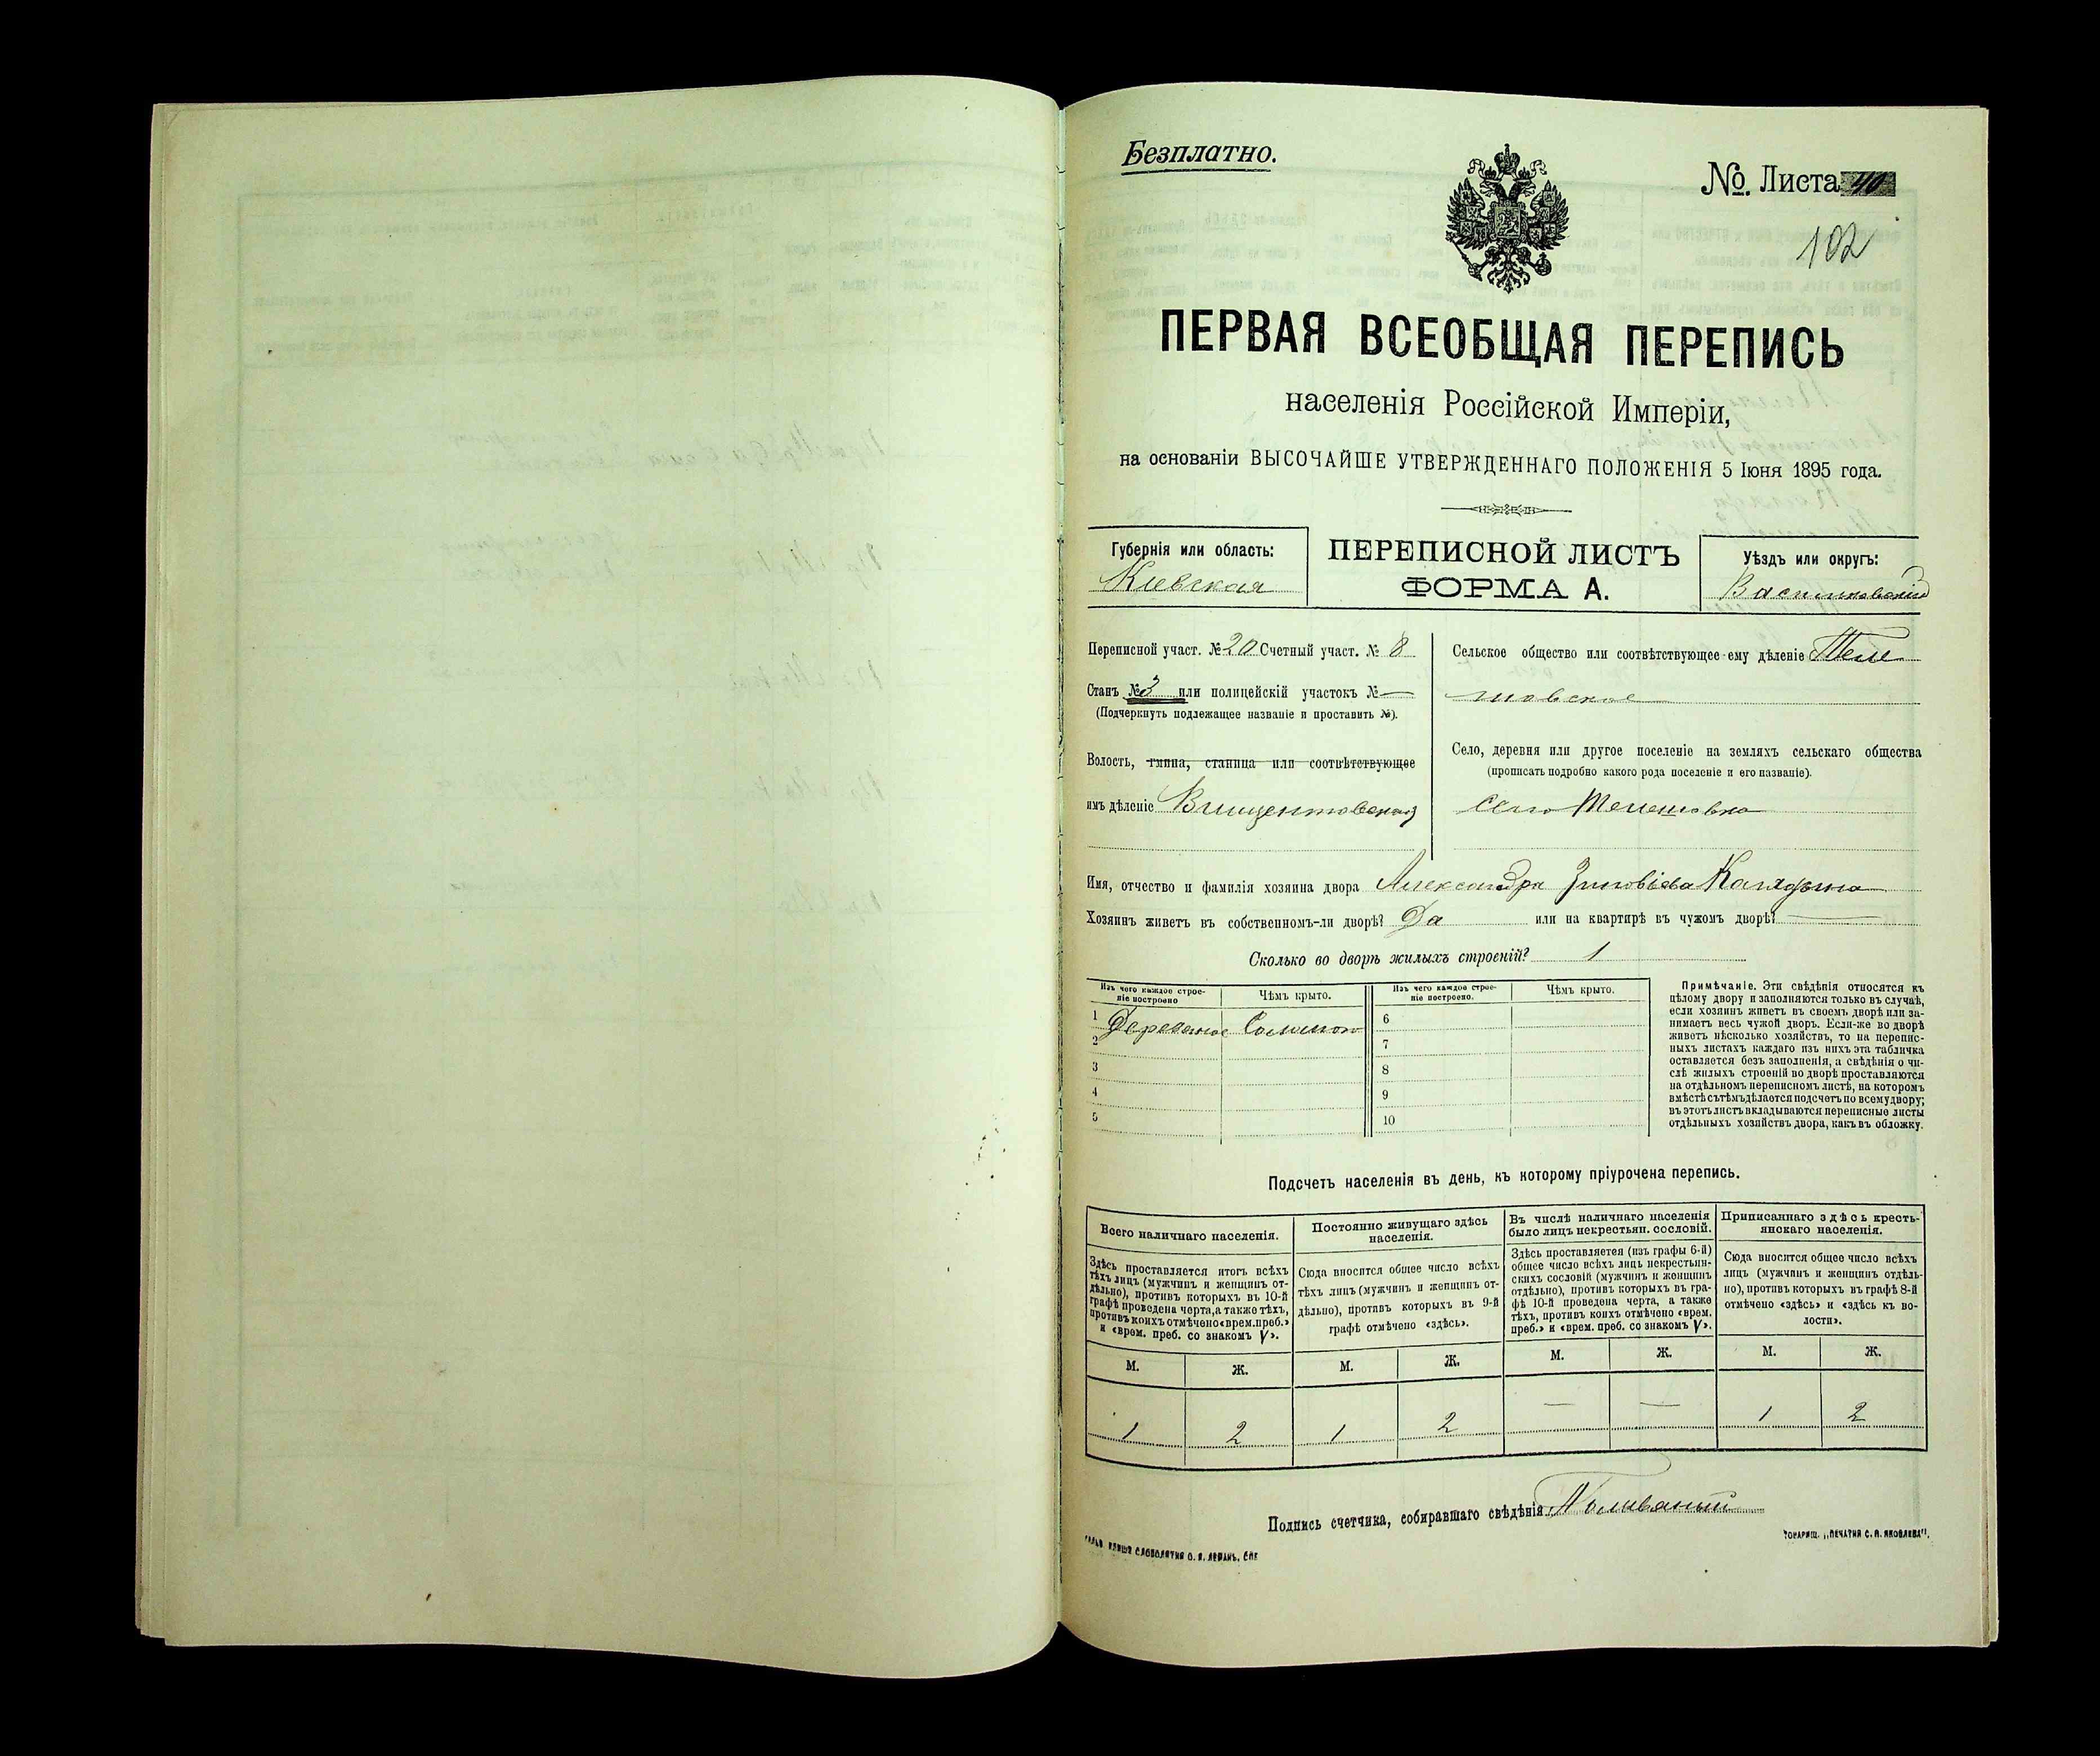 Безплатно.
№. Листа 40
102
ПЕРВАЯ ВСЕОБЩАЯ ПЕРЕПИСЬ
населенія Россійской Имперіи,
на основаніи ВЫСОЧАЙШЕ УТВЕРЖДЕННАГО ПОЛОЖЕНІЯ 5 Іюня 1895 года.
Губернія или область:
Киевская
ПЕРЕПИСНОЙ ЛИСТЪ
ФОРМА А.
Уѣздъ или округъ:
Васильковскій
Переписной участ. № 20 Счетный участ. № 8
Станъ № 3 или полицейскій участокъ № —
(Подчеркнуть подлежащее названіе и проставить №).
Волость, гмина, станица или соотвѣтствующее
имъ дѣленіе Винцентовская
Сельское общество или соотвѣтствующее ему дѣленіе Теле
шовское
Село, деревня или другое поселеніе на земляхъ сельскаго общества
(прописать подробно какого рода поселеніе и его названіе).
село Телешовка
Имя, отчество и фамилія хозяина двора Александра Зиновіева
Хозяинъ живетъ въ собственномъ-ли дворѣ? Да или на квартирѣ въ чужомъ дворѣ? —
Сколько во дворѣ жилыхъ строеній? 1
Изъ чего каждое строе-
ніе построено
Чѣмъ крыто.
Изъ чего каждое строе-
ніе построено.
Чѣмъ крыто.
1 Деревяное Соломою
2
3
4
5
6
7
8
9
10
Примѣчаніе. Эти свѣдѣнія относятся къ
цѣлому двору и заполняются только въ случаѣ,
если хозяинъ живетъ въ своемъ дворѣ или за-
нимаетъ весь чужой дворъ. Если-же во дворѣ
живетъ нѣсколько хозяйствъ, то на перепис-
ныхъ листахъ каждаго изъ нихъ эта табличка
оставляется безъ заполненія, а свѣдѣнія о чи-
слѣ жилыхъ строеній во дворѣ проставляются
на отдѣльномъ переписномъ листѣ, на которомъ
вмѣстѣ съ тѣмъ дѣлается подсчетъ по всему двору;
въ этотъ листъ вкладываются переписные листы
отдѣльныхъ хозяйствъ двора, какъ въ обложку.
Подсчетъ населенія въ день, къ которому пріурочена перепись.
Всего наличнаго населенія.
Здѣсь проставляется итогъ всѣхъ
тѣхъ лицъ (мужчинъ и женщинъ от-
дѣльно), противъ которыхъ въ 10-й
графѣ проведена черта, а также тѣхъ,
противъ коихъ отмѣчено «врем. преб.»
и «врем. преб. со знакомъ V».
Постоянно живущаго здѣсь
населенія.
Сюда вносится общее число всѣхъ
тѣхъ лицъ (мужчинъ и женщинъ от-
дѣльно), противъ которыхъ въ 9-й
графѣ отмѣчено «здѣсь».
Въ числѣ наличнаго населенія
было лицъ некрестьян. сословій.
Здѣсь проставляется (изъ графы 6-й)
общее число всѣхъ лицъ некрестьян-
скихъ сословій (мужчинъ и женщинъ
отдѣльно), противъ которыхъ въ гра-
фѣ 10-й проведена черта, а также
тѣхъ, противъ коихъ отмѣчено «врем.
преб.» и «врем. преб. со знакомъ V».
Приписаннаго здѣсь кресть-
янскаго населенія.
Сюда вносится общее число всѣхъ
лицъ (мужчинъ и женщинъ отдѣль-
но), противъ которыхъ въ графѣ 8-й
отмѣчено «здѣсь» и «здѣсь къ во-
лости».
М. Ж. М. Ж. М. Ж. М. Ж.
1 2 1 2 — — 1 2
Подпись счетчика, собиравшаго свѣдѣнія
СЛОВОЛИТНЯ О. И. ЛЕМАНЪ, СПБ
ТОВАРИЩ. „ПЕЧАТНЯ С. П. ЯКОВЛЕВА".